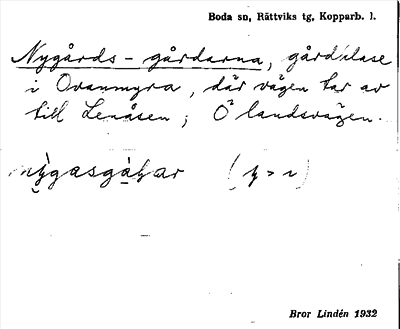 Boda sn, Rättviks tg, Kopparb. l.
Nygårds-gårdarna, gårdklase
i Ovanmyra, där vägen tar av
till Lenåsen; Ö landsvägen.
(y > i)
Bror Lindén 1932